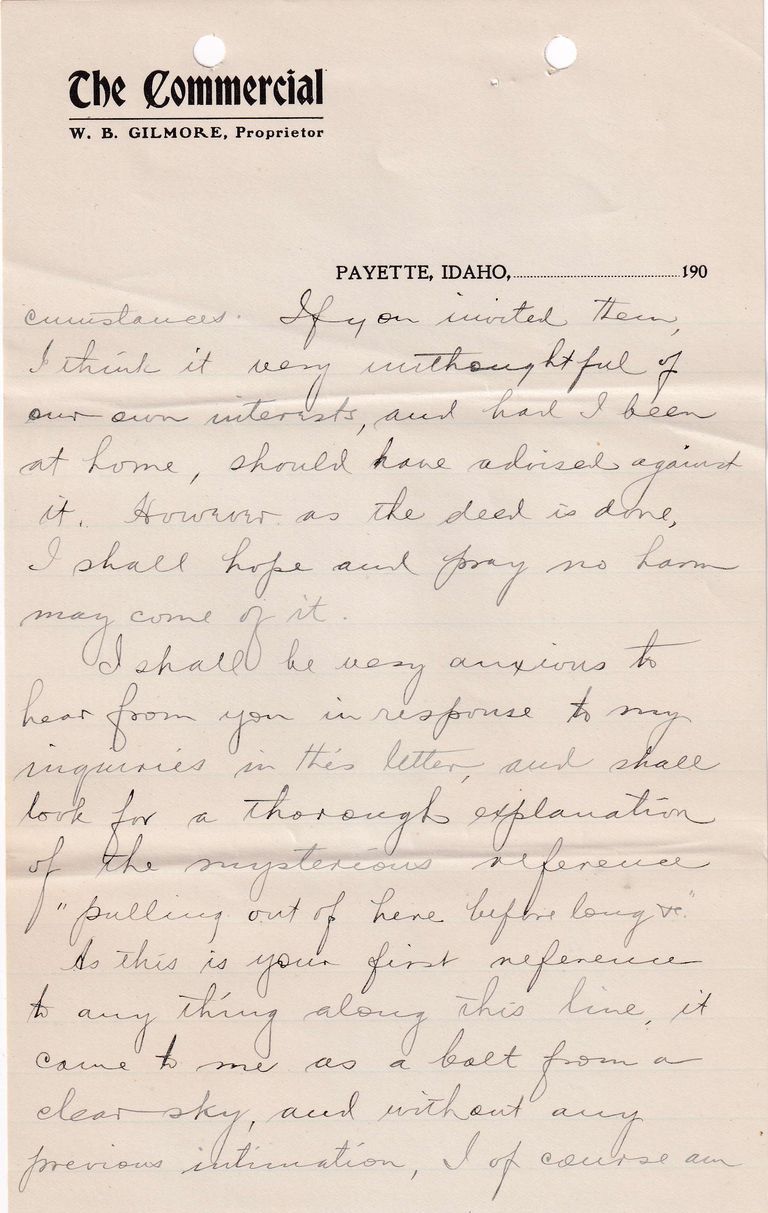 The Commercial
W. B. GILMORE, Proprietor
PAYETTE, IDAHO, 190
cumstances. If you invited them,
I think it very unthoughtful of
our own interests, and had I been
at home, should have advised against
it. However as the deed is done,
I shall hope and pray no harm
may come of it.
I shall be very anxious to
hear from you in response to my
inquiries in this letter, and shall
look for a thorough explanation
of the mysterious reference
"pulling out of here before long &c."
As this is your first reference
to any thing along this line, it
came to me as a bolt from a
clear sky, and without any
previous intimation, I of course am